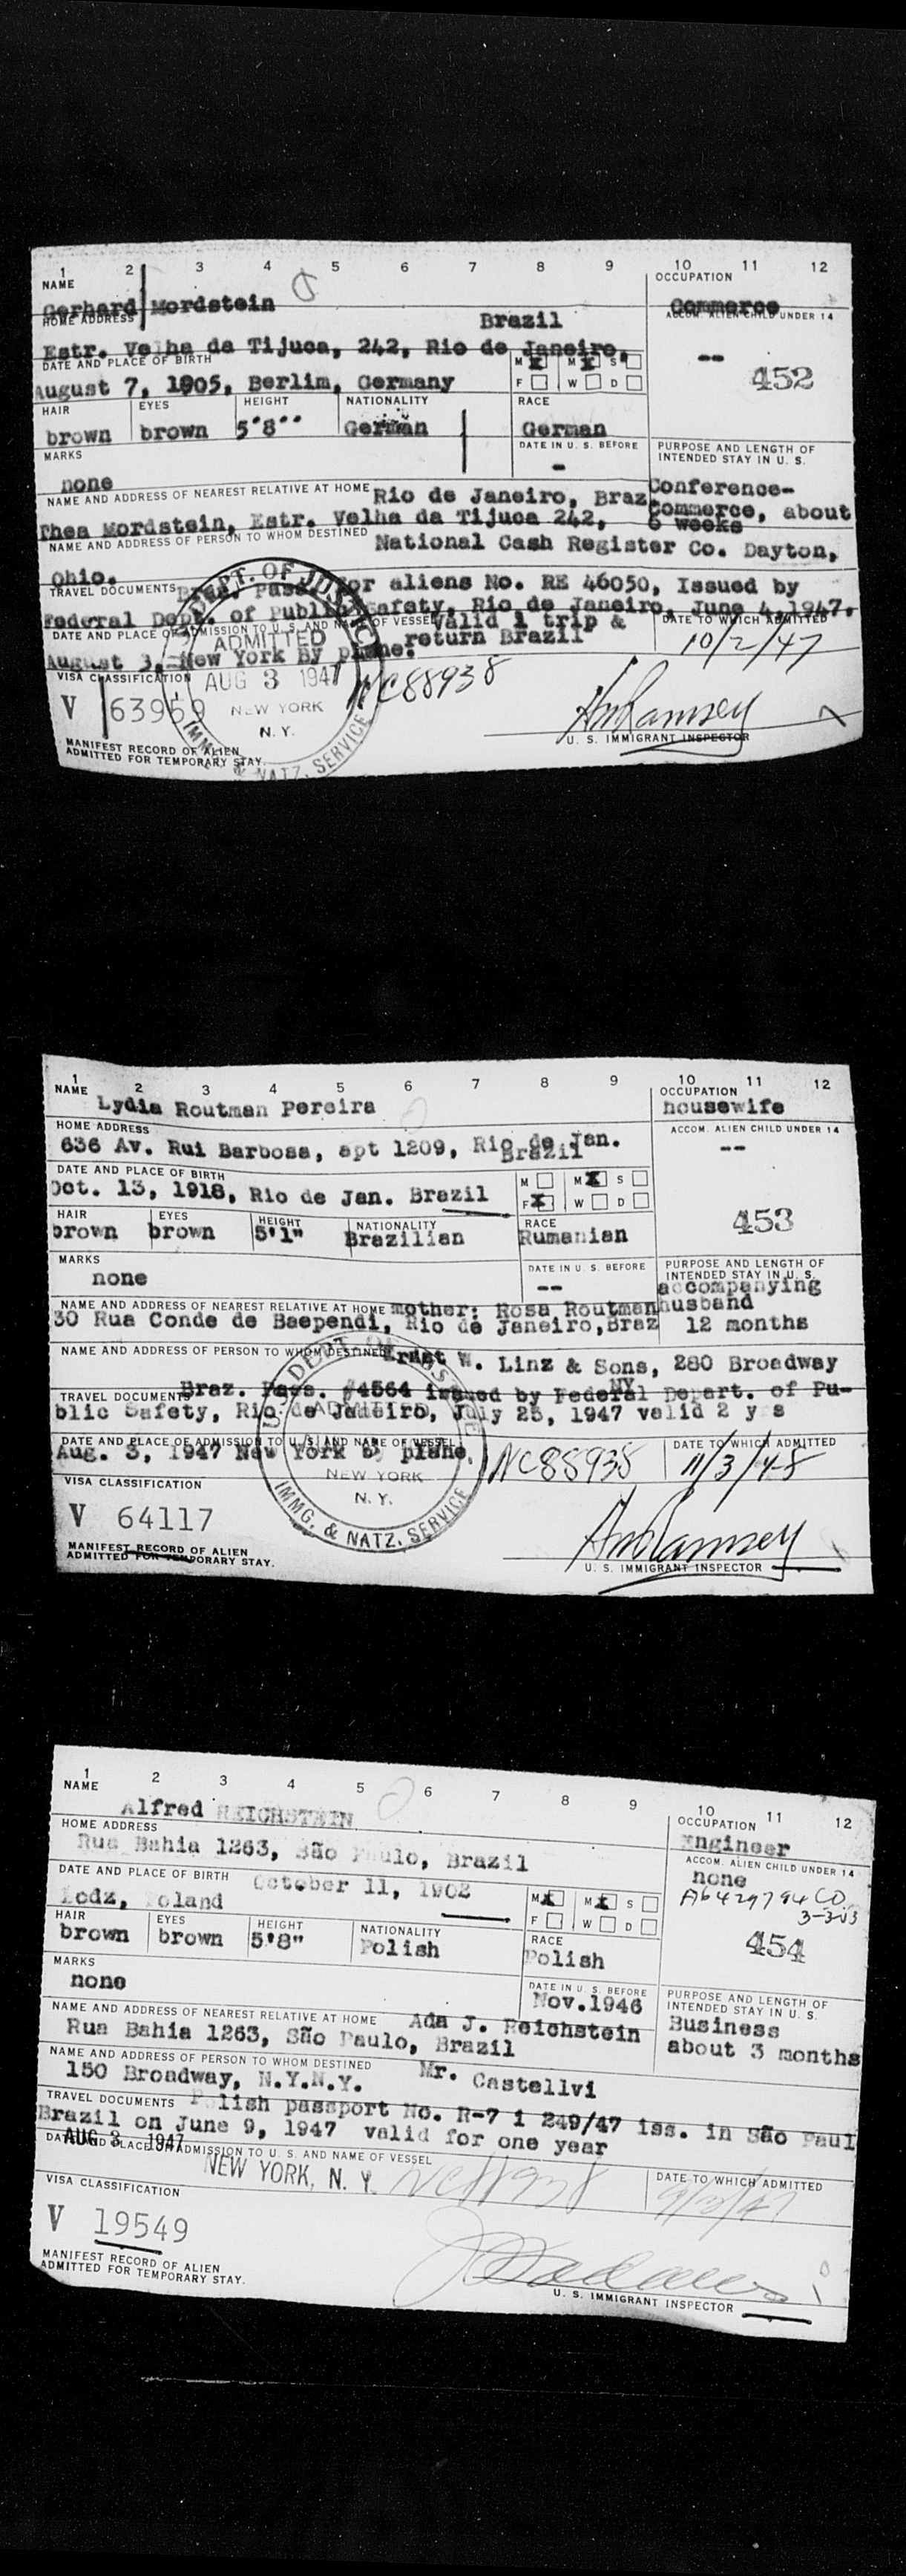 1 2 3 4 5 6 7 8 9 10 11 12
NAME OCCUPATION
Gerhard Mordstein Commerce
HOME ADDRESS ACCOM. ALIEN CHILD UNDER 14
Brazil
Estr. Velha da Tijuca, 242, Rio de Janeiro, --
DATE AND PLACE OF BIRTH M X M X S
August 7, 1905, Berlim, Germany F W D 452
HAIR EYES HEIGHT NATIONALITY RACE
brown brown 5'8'' German German
MARKS DATE IN U. S. BEFORE PURPOSE AND LENGTH OF INTENDED STAY IN U. S.
none - Conference-
NAME AND ADDRESS OF NEAREST RELATIVE AT HOME Rio de Janeiro, Braz Commerce, about
Thea Mordstein, Estr. Velha da Tijuca 242, 6 weeks
NAME AND ADDRESS OF PERSON TO WHOM DESTINED National Cash Register Co. Dayton,
Ohio.
TRAVEL DOCUMENTS Braz. Pass. for aliens No. RE 46050, Issued by
Federal Dept. of Public Safety, Rio de Janeiro, June 4, 1947.
DATE AND PLACE OF ADMISSION TO U. S. AND NAME OF VESSEL Valid 1 trip & DATE TO WHICH ADMITTED
August 3, New York by plane. return Brazil 10/2/47
DEPT. OF JUSTICE
ADMITTED
AUG 3 1947
NEW YORK
N. Y.
IMMG. & NATZ. SERVICE
NC88938
VISA CLASSIFICATION
V 63969
U. S. IMMIGRANT INSPECTOR
MANIFEST RECORD OF ALIEN
ADMITTED FOR TEMPORARY STAY.
1 2 3 4 5 6 7 8 9 10 11 12
NAME OCCUPATION
Lydia Routman Pereira housewife
HOME ADDRESS ACCOM. ALIEN CHILD UNDER 14
636 Av. Rui Barbosa, apt 1209, Rio de Jan. --
Brazil
DATE AND PLACE OF BIRTH M M X S
Oct. 13, 1918, Rio de Jan. Brazil F X W D 453
HAIR EYES HEIGHT NATIONALITY RACE
brown brown 5'1" Brazilian Rumanian
MARKS DATE IN U. S. BEFORE PURPOSE AND LENGTH OF INTENDED STAY IN U. S.
none -- accompanying
NAME AND ADDRESS OF NEAREST RELATIVE AT HOME mother: Rosa Routman husband
30 Rua Conde de Baependi, Rio de Janeiro, Braz 12 months
NAME AND ADDRESS OF PERSON TO WHOM DESTINED Ernst W. Linz & Sons, 280 Broadway
NY.
TRAVEL DOCUMENTS Braz. Pass. #4564 issued by Federal Depart. of Pu-
blic Safety, Rio de Janeiro, July 25, 1947 valid 2 y s
DATE AND PLACE OF ADMISSION TO U. S. AND NAME OF VESSEL DATE TO WHICH ADMITTED
Aug. 3, 1947 New York by plane. NC88938 11/3/48
ADMITTED
NEW YORK
N. Y.
IMMG. & NATZ. SERVICE
VISA CLASSIFICATION
V 64117
MANIFEST RECORD OF ALIEN
ADMITTED FOR TEMPORARY STAY.
U. S. IMMIGRANT INSPECTOR
1 2 3 4 5 6 7 8 9 10 11 12
NAME OCCUPATION
Alfred REICHSTEIN Engineer
HOME ADDRESS ACCOM. ALIEN CHILD UNDER 14
Rua Bahia 1263, São Paulo, Brazil none
A6429794 CO
3-3-53
DATE AND PLACE OF BIRTH October 11, 1902 M X M X S
Lodz, Poland F W D 454
HAIR EYES HEIGHT NATIONALITY RACE
brown brown 5'8" Polish Polish
MARKS DATE IN U. S. BEFORE PURPOSE AND LENGTH OF INTENDED STAY IN U. S.
none Nov. 1946 Business
NAME AND ADDRESS OF NEAREST RELATIVE AT HOME Ada J. Reichstein about 3 months
Rua Bahia 1263, São Paulo, Brazil
NAME AND ADDRESS OF PERSON TO WHOM DESTINED Mr. Castellvi
150 Broadway, N.Y.N.Y.
TRAVEL DOCUMENTS Polish passport No. R-7 i 249/47 iss. in São Paul
Brazil on June 9, 1947 valid for one year
AUG 3 1947
DATE AND PLACE OF ADMISSION TO U. S. AND NAME OF VESSEL DATE TO WHICH ADMITTED
NEW YORK, N. Y.
VISA CLASSIFICATION
V 19549
MANIFEST RECORD OF ALIEN
ADMITTED FOR TEMPORARY STAY.
U. S. IMMIGRANT INSPECTOR